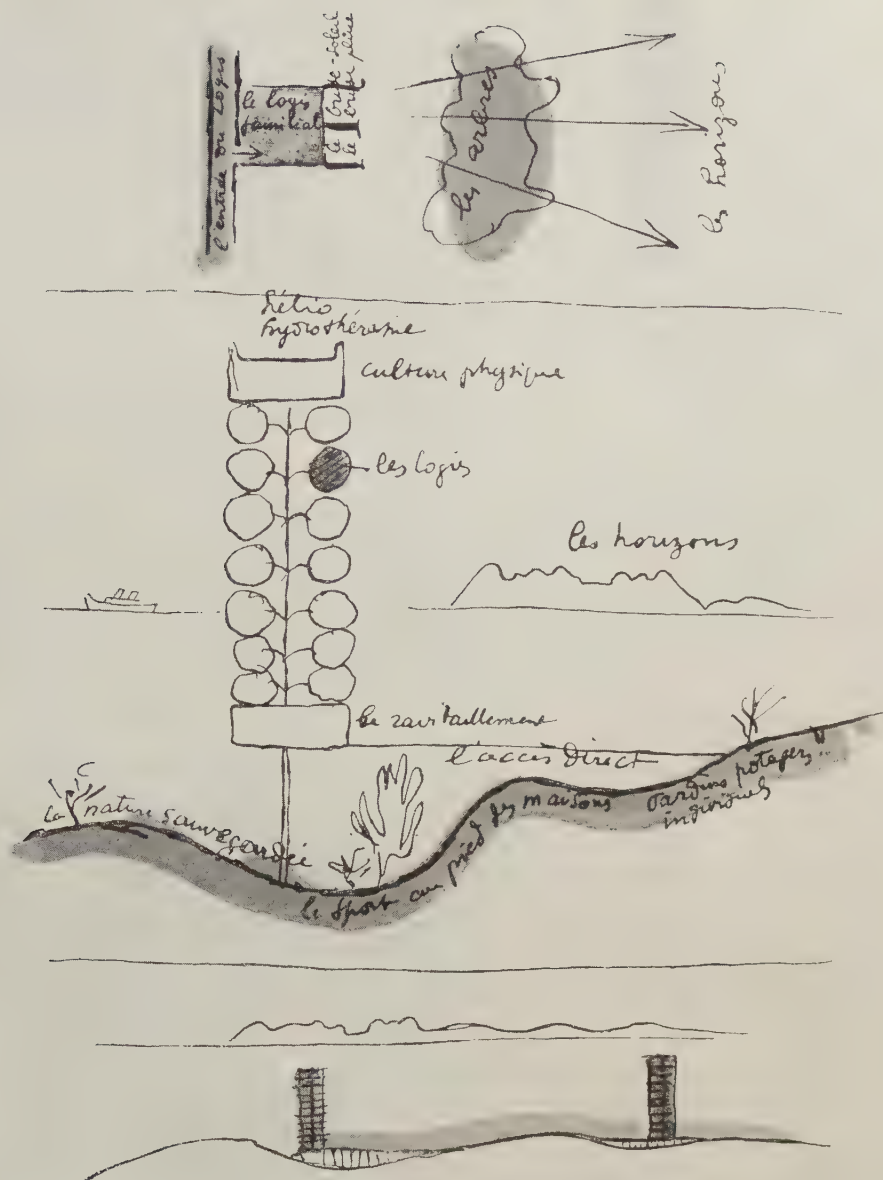 l'entrée du logis
le logis
familial
le brise-soleil
le
les arbres
les horizons
hélio
hydrothérapie
culture physique
les logis
les horizons
le ravitaillement
l'accès direct
la nature sauvegardée
le sport au pied des maisons
Jardins potagers
individuels